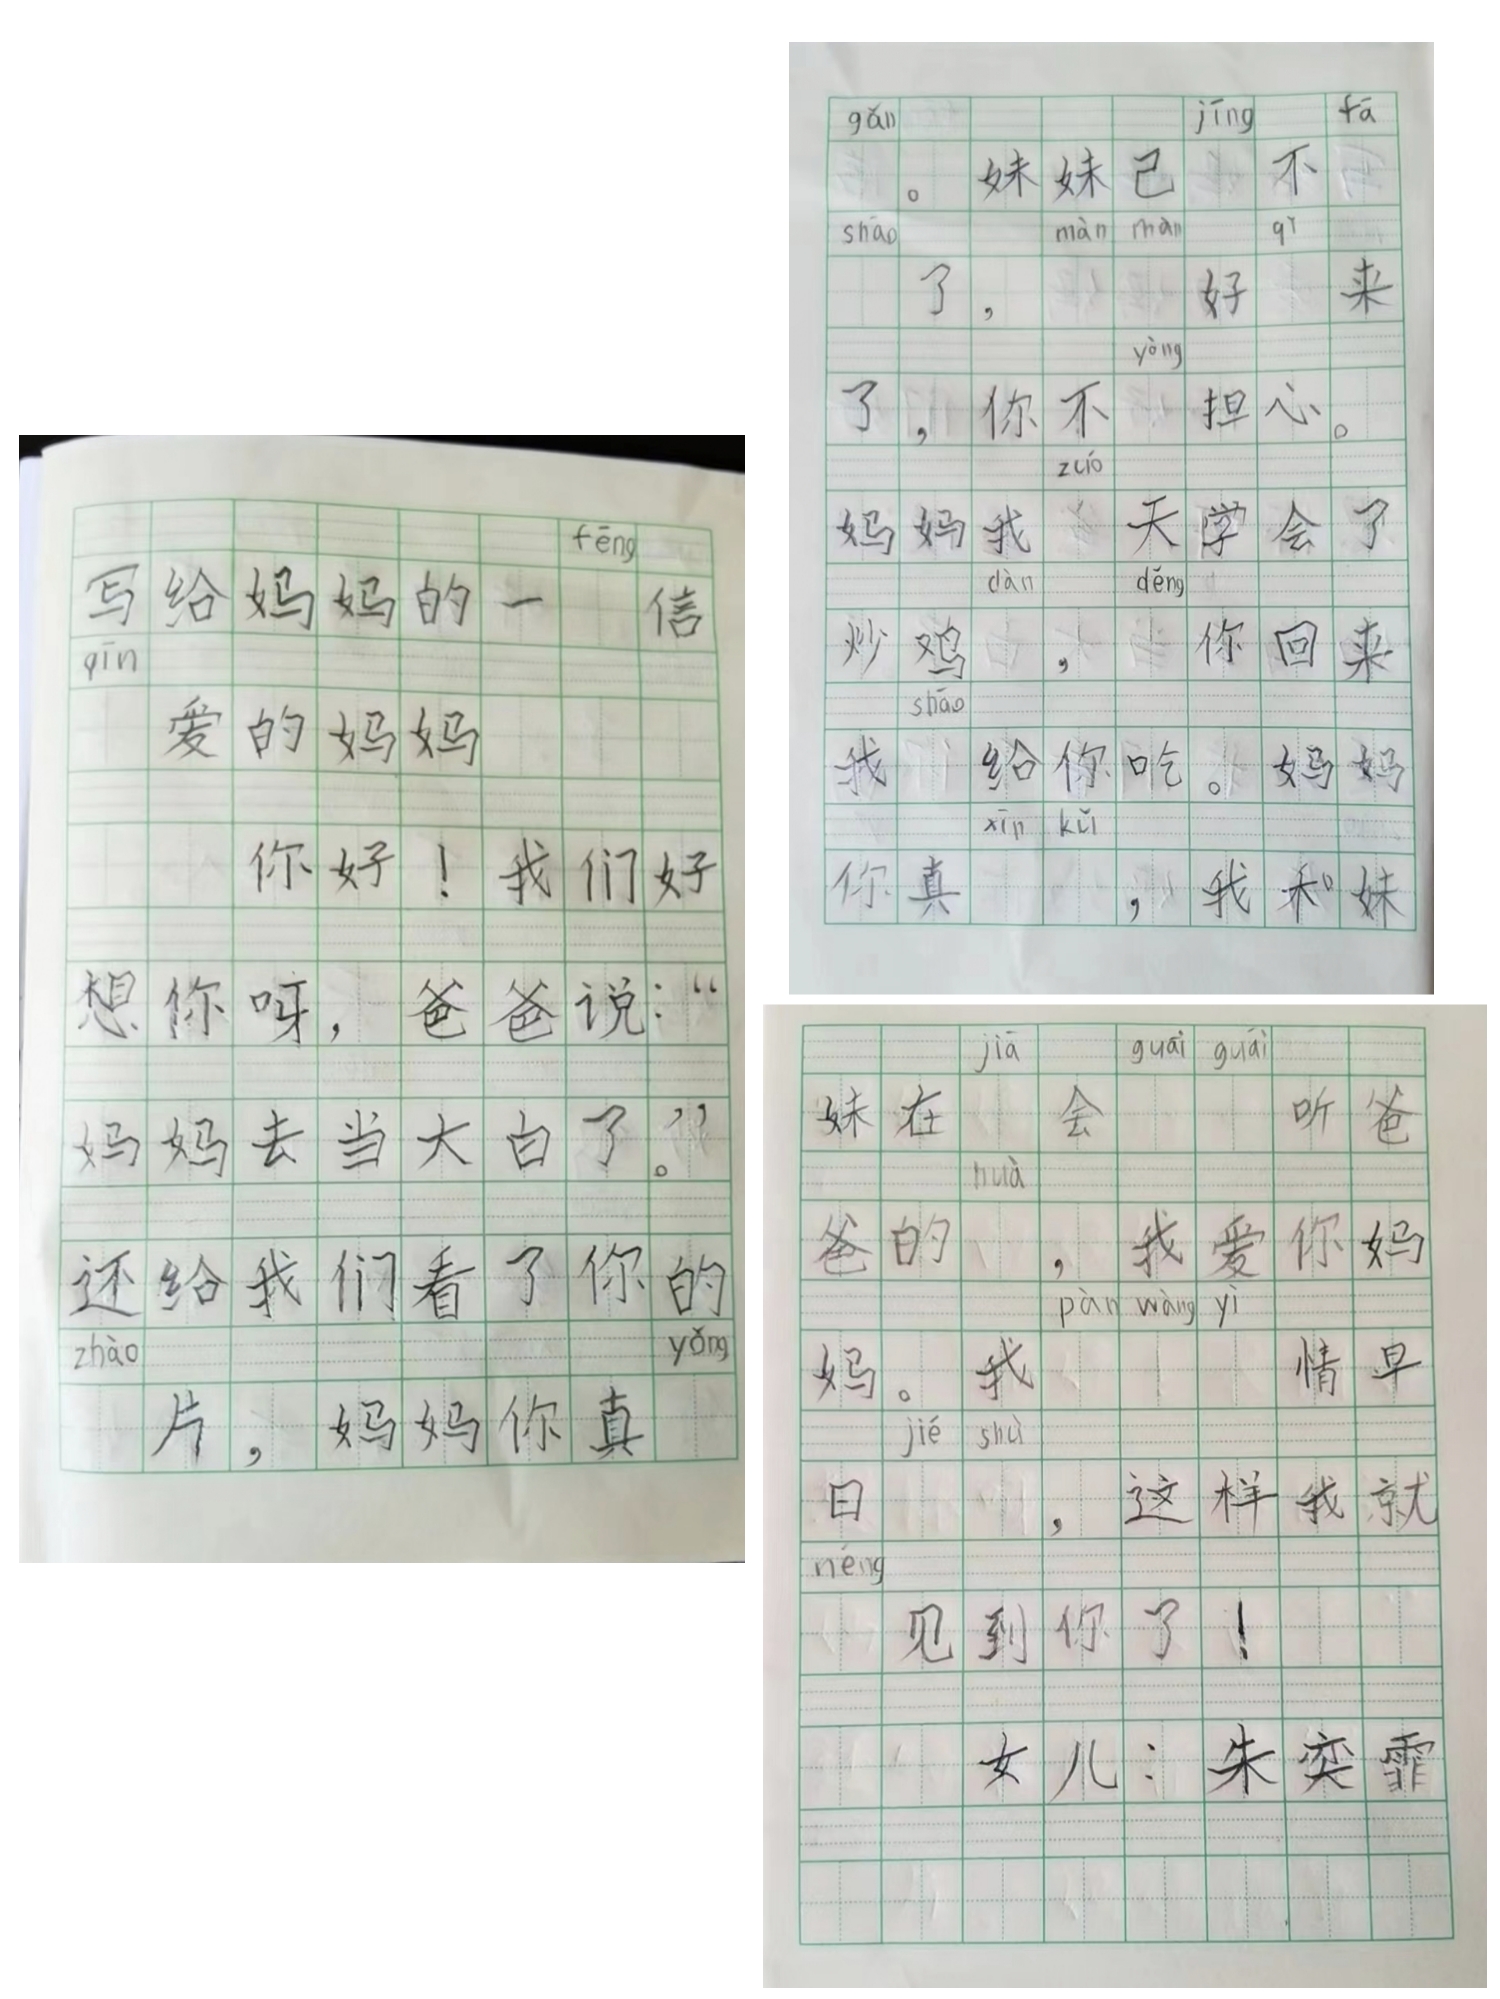 fēng
写给妈妈的一 信
qīn
爱的妈妈
你好！我们好
想你呀，爸爸说：“
妈妈去当大白了。”
还给我们看了你的
zhào yǒng
片，妈妈你真
gǎn jīng fā
。妹妹已 不
shāo màn màn qǐ
了， 好 来
yòng
了，你不 担心。
zuó
妈妈我 天学会了
dàn děng
炒鸡 ， 你回来
shāo
我 给你吃。妈妈
xīn kǔ
你真 ，我和妹
jiā guāi guāi
妹在 会 听爸
huà
爸的 ，我爱你妈
pàn wàng yì
妈。我 情早
jié shù
日 ，这样我就
néng
见到你了！
女儿：朱奕霏